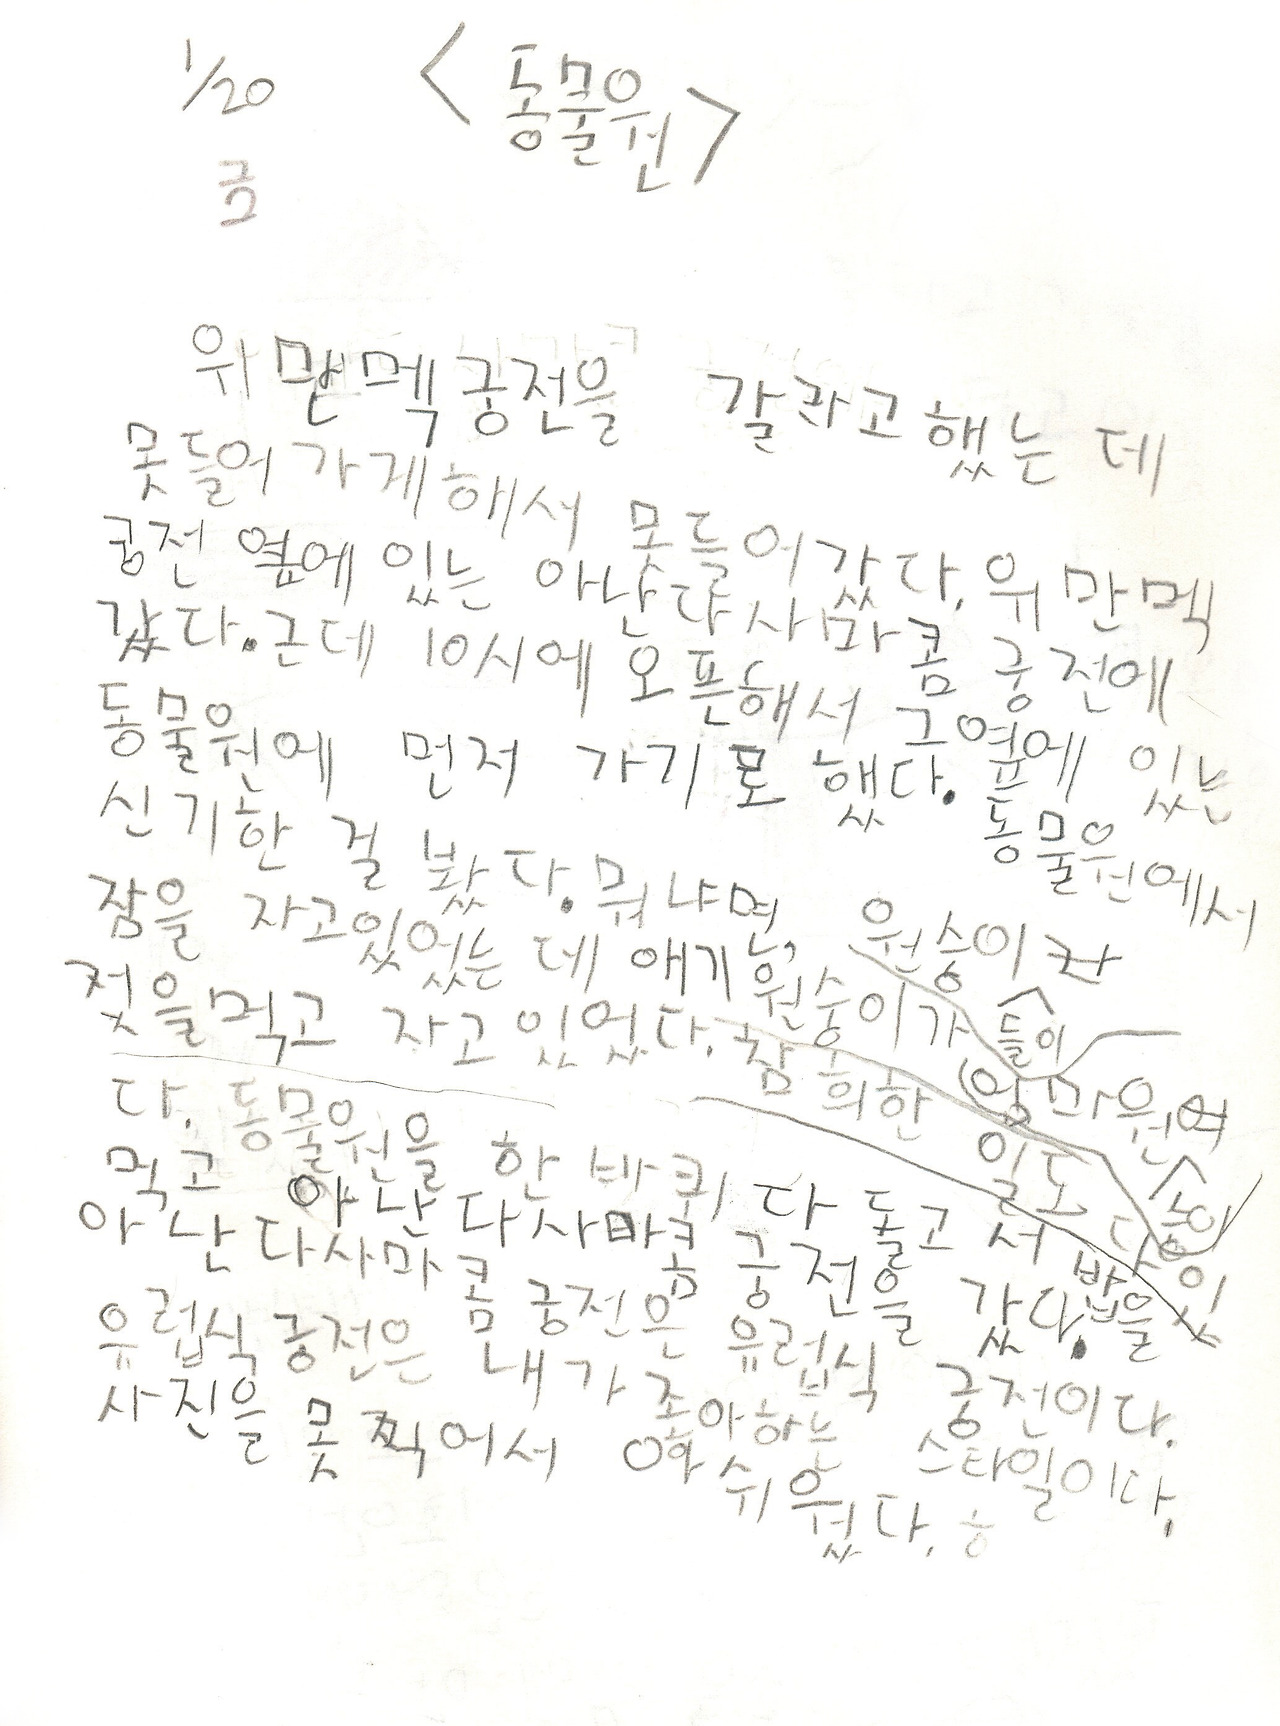 1/20
<동물원>
금
위맨멕궁전을 갈라고했는데
못들어가게해서 못들어갔다. 위만멕
궁전 옆에 있는 아난다사마콤 궁전에
갔다. 근데 10시에 오픈해서 그옆에 있는
동물원에 먼저 가기로 했다. 동물원에서
신기한 걸 봤다. 뭐냐면, 원숭이
들이
잠을 자고있었는데 애기원숭이가 엄마원
숭이
젖을먹고 자고있었다. 참 희한 일도 다있
다. 동물원을 한바퀴 다 돌고서 밥을
먹고 아난다사마콤 궁전을 갔다.
아난다사마콤 궁전은 유럽식 궁전이다.
유럽식궁전은 내가 좋아하는 스타일이다.
사진을 못찍어서 아쉬웠다.